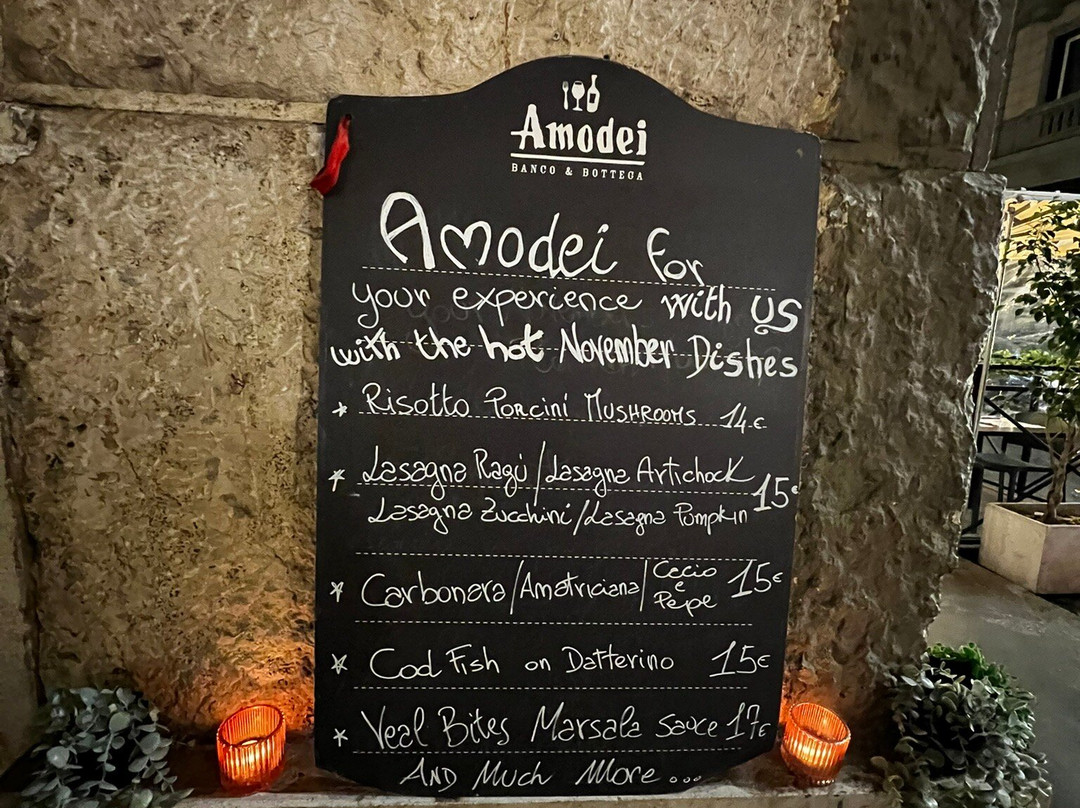 Amodei
BANCO & BOTTEGA
Amodei for
your experience with us
with the hot November Dishes
* Risotto Porcini Mushrooms 14€
* Lasagna Ragù / Lasagna Artichock
Lasagna Zucchini / Lasagna Pumpkin 15€
* Carbonara / Amatriciana / Cacio e Pepe 15€
* Cod Fish on Datterino 15€
* Veal Bites Marsala sauce 17€
AND Much More...